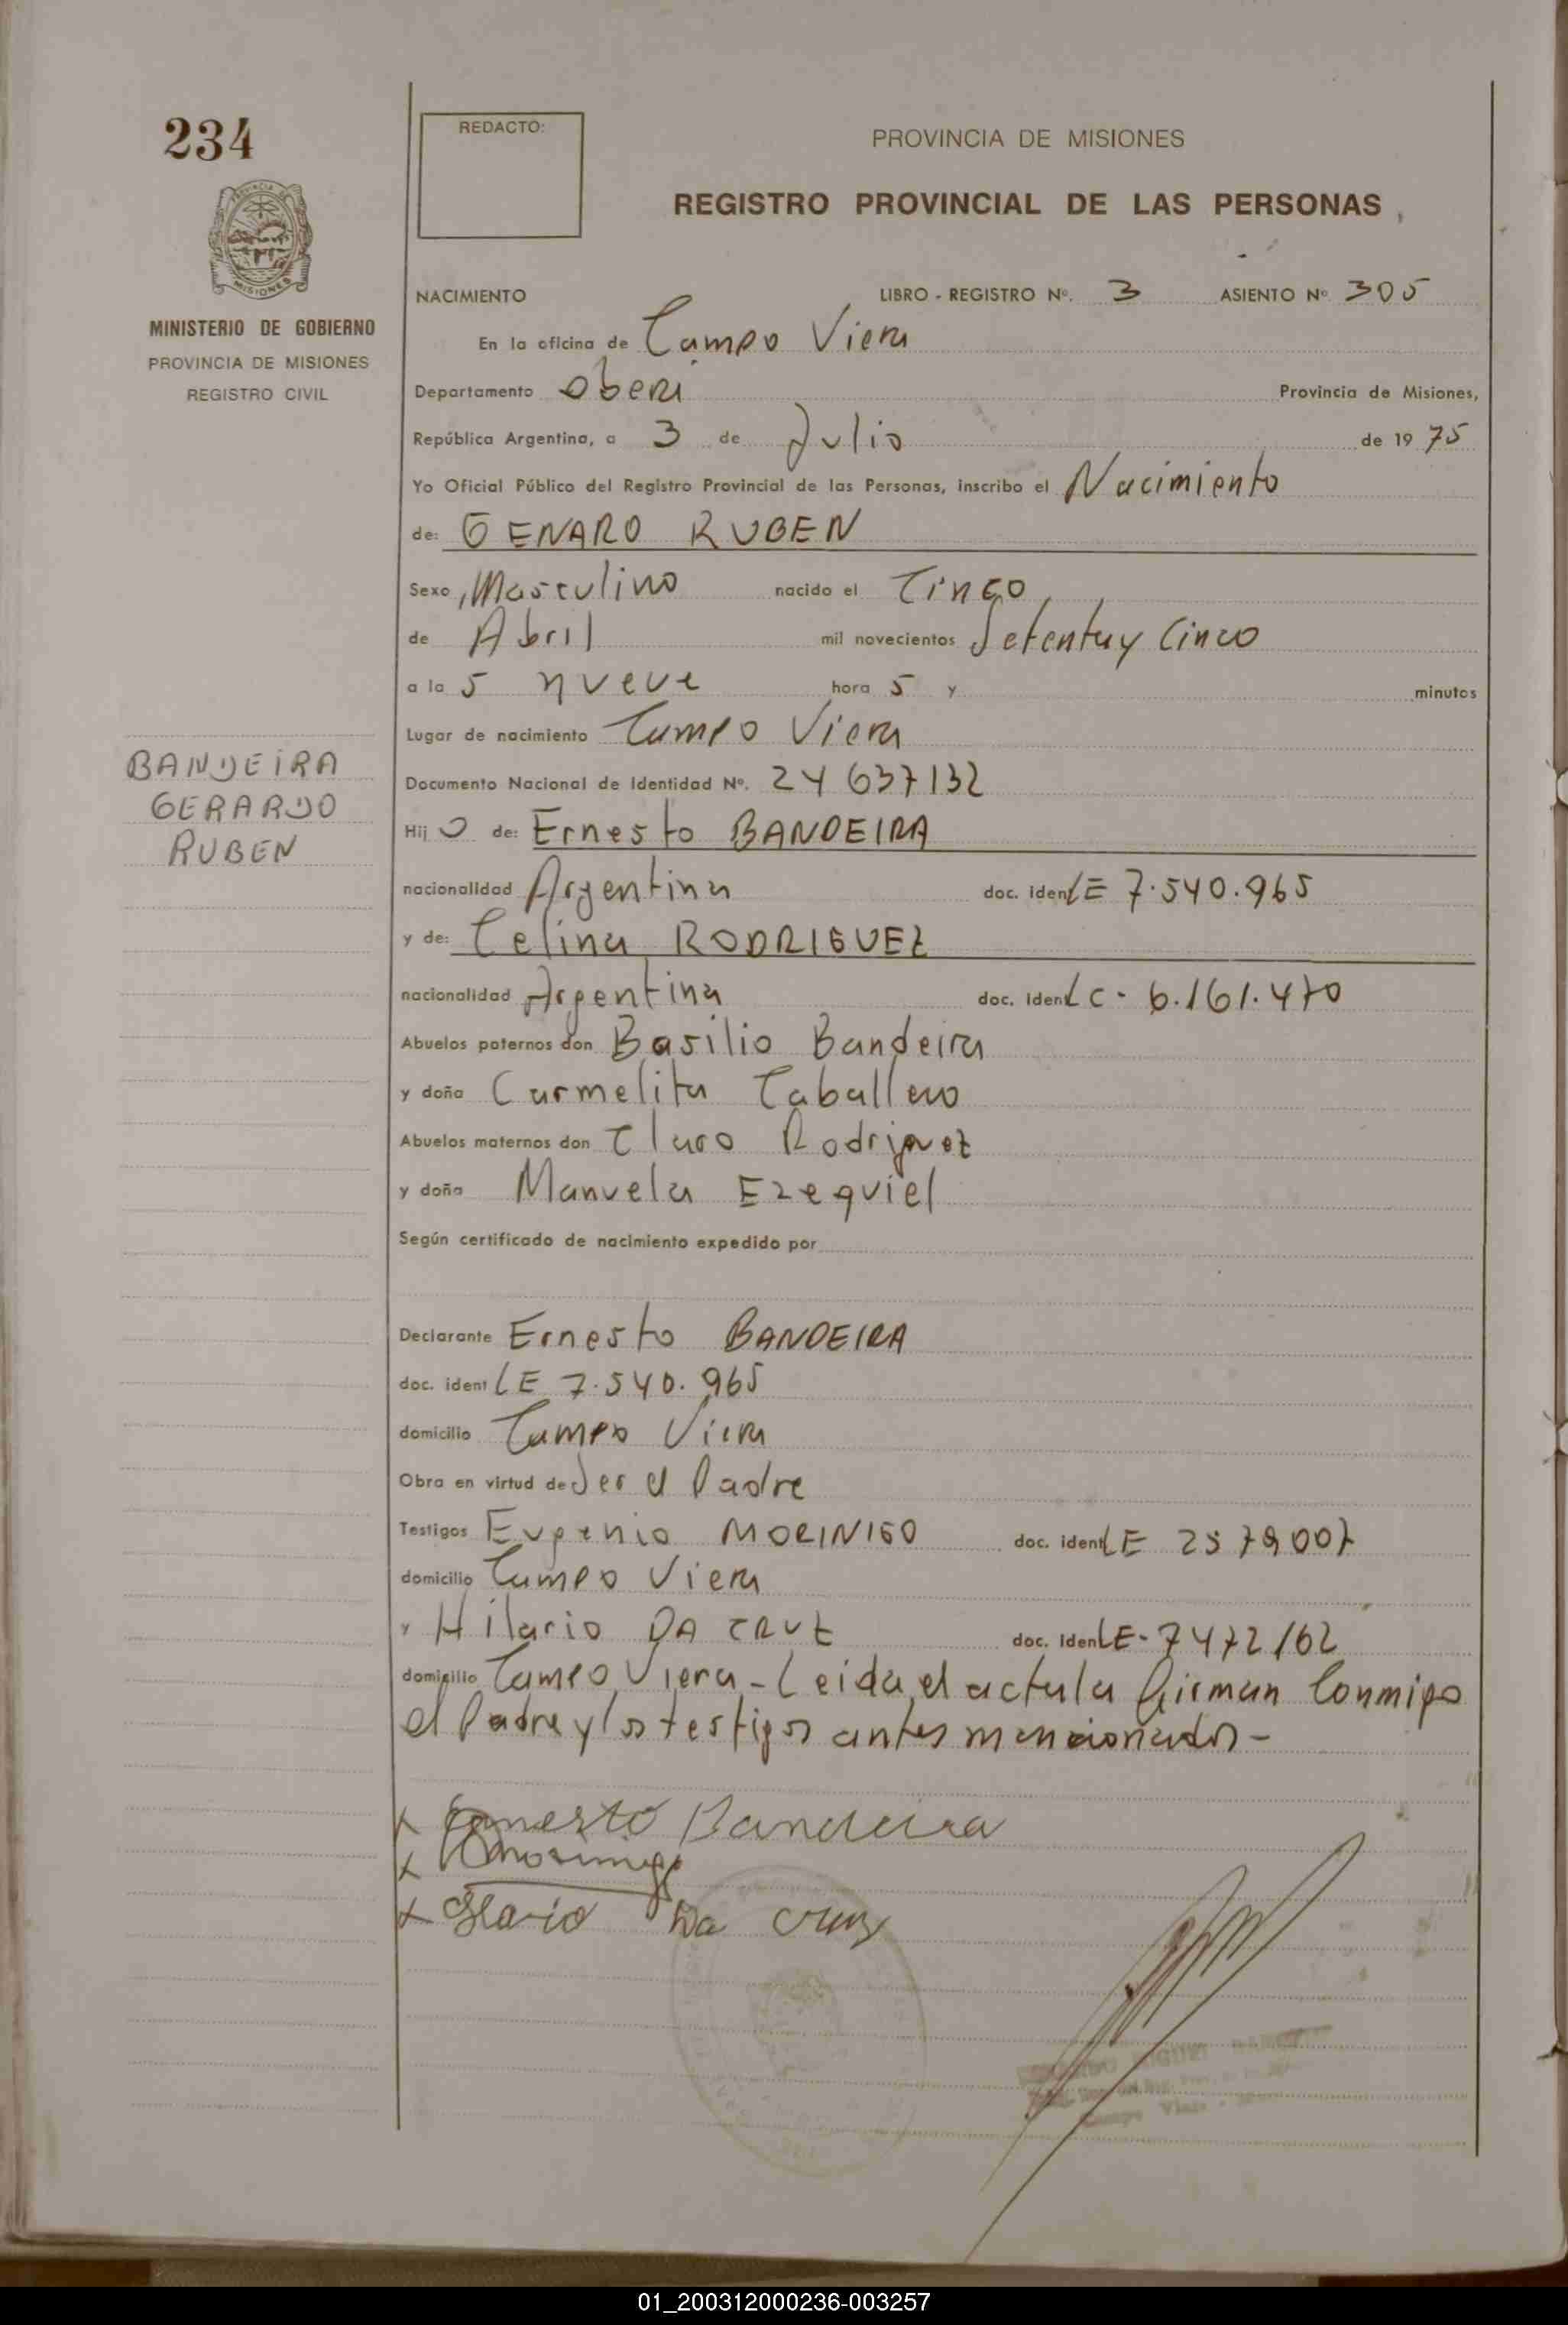 234
REDACTO:
PROVINCIA DE MISIONES
REGISTRO PROVINCIAL DE LAS PERSONAS
MINISTERIO DE GOBIERNO
PROVINCIA DE MISIONES
REGISTRO CIVIL
NACIMIENTO LIBRO - REGISTRO Nº. 3 ASIENTO Nº 305
En la oficina de Campo Viera
Departamento Obera Provincia de Misiones,
República Argentina, a 3 de Julio de 1975
Yo Oficial Público del Registro Provincial de las Personas, inscribo el Nacimiento
de: GENARO RUBEN
Sexo Masculino nacido el Cinco
de Abril mil novecientos Setenta y Cinco
a la s nueve hora s y minutos
Lugar de nacimiento Campo Viera
BANDEIRA
GERARDO
RUBEN
Documento Nacional de Identidad Nº. 24 637132
Hij o de: Ernesto BANDEIRA
nacionalidad Argentina doc. ident LE 7.540.965
y de: Celina RODRIGUEZ
nacionalidad Argentina doc. ident LC - 6.161.470
Abuelos paternos don Basilio Bandeira
y doña Carmelita Caballero
Abuelos maternos don Claro Rodriguez
y doña Manuela Ezequiel
Según certificado de nacimiento expedido por
Declarante Ernesto BANDEIRA
doc. ident LE 7.540.965
domicilio Campo Viera
Obra en virtud de Ser el Padre
Testigos Eugenio MORINIGO doc. ident LE 2579007
domicilio Campo Viera
y Hilario DA CRUZ doc. iden LE - 7472162
domicilio Campo Viera - Leida el acta la firman Conmigo
el Padre y los testigos antes mencionados -
x Ernesto Bandeira
x Morinigo
x Ilario Da Cruz
01_200312000236-003257